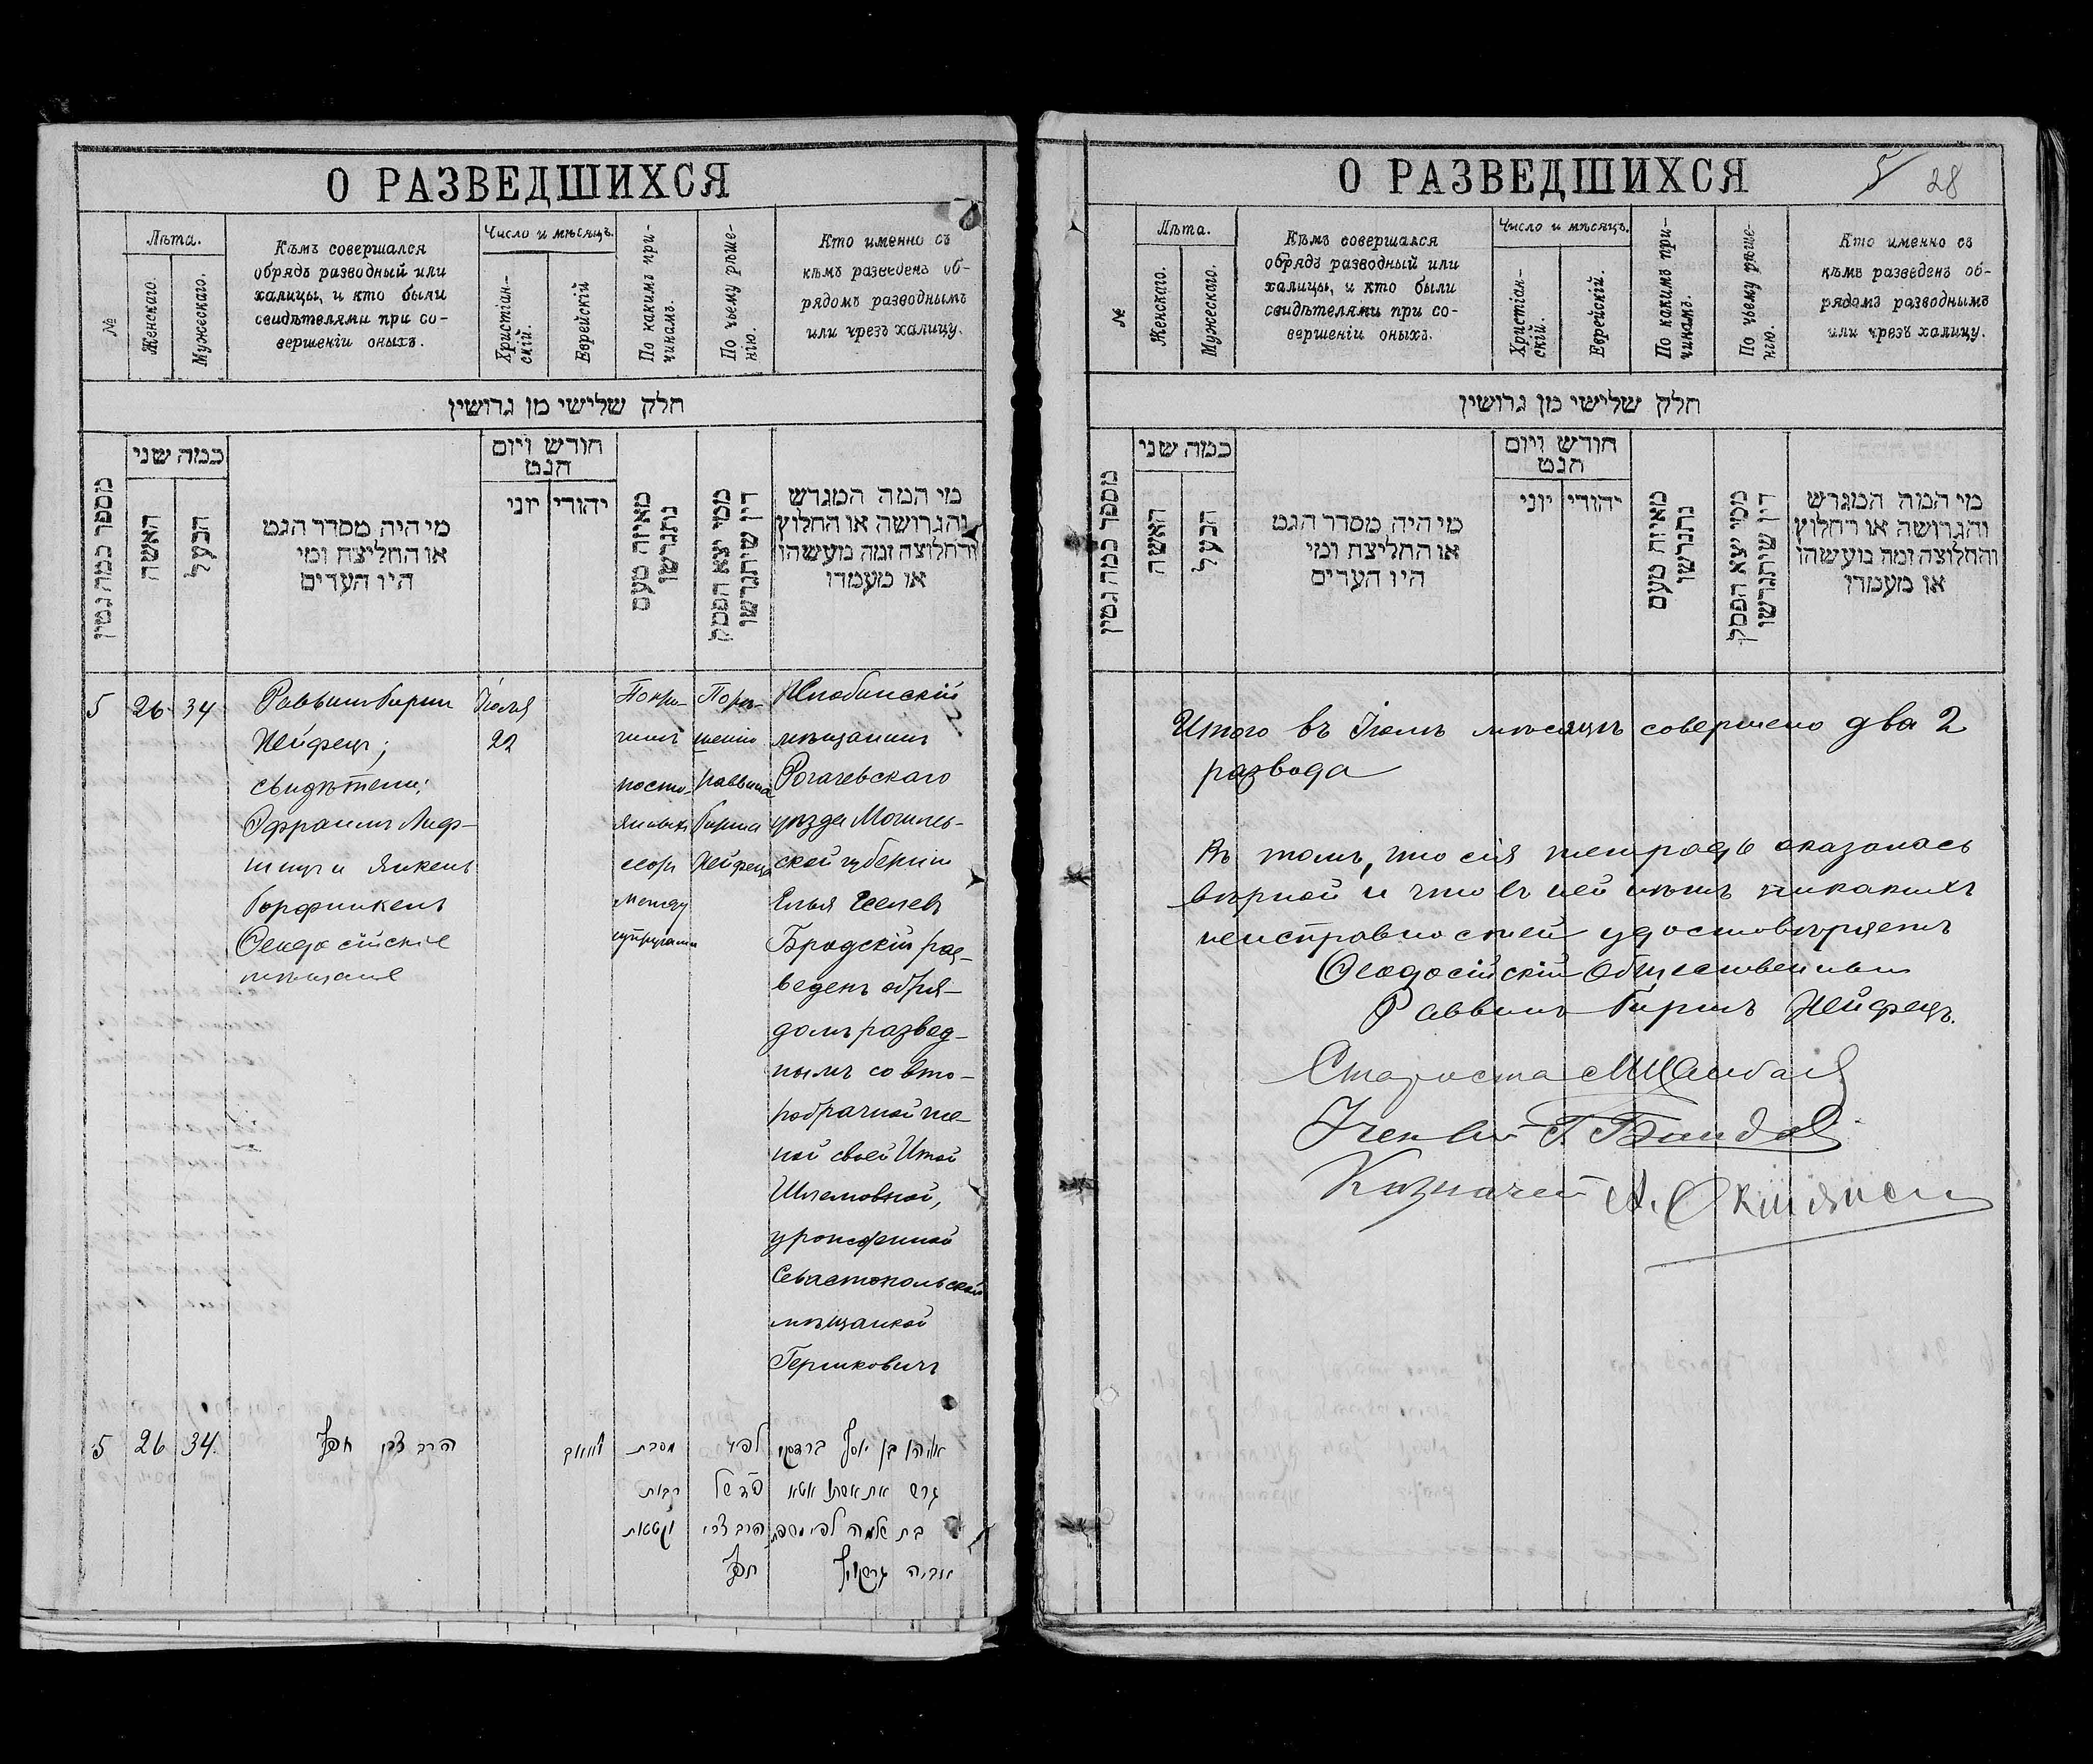 О РАЗВЕДШИХСЯ
№
Лѣта.
Женскаго.
Мужескаго.
Кѣмъ совершался
обрядъ разводный или
халицы, и кто были
свидѣтелями при со-
вершеніи оныхъ.
Число и мѣсяцъ.
Христіан-
скій.
Еврейскій
По какимъ при-
чинамъ.
По чьему рѣше-
нію.
Кто именно съ
кѣмъ разведенъ об-
рядомъ разводнымъ
или чрезъ халицу.
חלק שלישי מן גרושין
מספר כמה גטין
כמה שני
האשה
הבעל
מי היה מסדר הגט
או החליצה ומי
היו העדים
חודש ויום
הגט
יוני
יהודי
מאיזה טעם
נתגרשו
ממי יצא הפסק
דין שיתגרשו
מי המה המגרש
והגרושה או החלוץ
והחלוצה ומה מעשהו
או מעמדו
5
26
34
Раввинъ Гиршъ
Хейфецъ;
свидѣтели:
Эфраимъ Лиф-
шицъ и Янкель
Горфинкель
Ѳеодосійскіе
мѣщане
Іюля
22
По при-
чинѣ
посто-
янныхъ
ссоръ
между
супругами
По рѣ-
шенію
раввина
Гирша
Хейфеца
Жлобинскій
мѣщанинъ
Рогачевскаго
уѣзда Могилев-
ской губерніи
Елья
Бродскій раз-
веденъ обря-
домъ развод-
нымъ со вто-
робрачной же-
ной своей Итой
Шлемовной,
урожденной
Севастопольской
мѣщанкой
Гершковичъ
5
26
34.
הרב צבי חפץ
מסבת
ריבות
וקטטות
לפי
פ״ד של
הרב צבי
חפץ
אליהו בן יוסף ברדסקי
גרש את אשתו איטא
בת שלמה לפי משפחת
אביה גרשקוביץ
О РАЗВЕДШИХСЯ
5
28
№
Лѣта.
Женскаго.
Мужескаго.
Кѣмъ совершался
обрядъ разводный или
халицы, и кто были
свидѣтелями при со-
вершеніи оныхъ.
Число и мѣсяцъ.
Христіан-
скій.
Еврейскій.
По какимъ при-
чинамъ.
По чьему рѣше-
нію.
Кто именно съ
кѣмъ разведенъ об-
рядомъ разводнымъ
или чрезъ халицу.
חלק שלישי מן גרושין
מספר כמה גטין
כמה שני
האשה
הבעל
מי היה מסדר הגט
או החליצה ומי
היו העדים
חודש ויום
הגט
יוני
יהודי
מאיזה טעם
נתגרשו
ממי יצא הפסק
דין שיתגרשו
מי המה המגרש
והגרושה או החלוץ
והחלוצה ומה מעשהו
או מעמדו
Итого въ Іюлѣ мѣсяцѣ совершено два 2
развода
Въ томъ, что сія тетрадь оказалась
вѣрной и что въ ней нѣтъ никакихъ
неисправностей удостовѣряетъ
Ѳеодосійскій Общественный
Раввинъ Гиршъ Хейфецъ.
Староста
Ученый Г.
Казначей А.